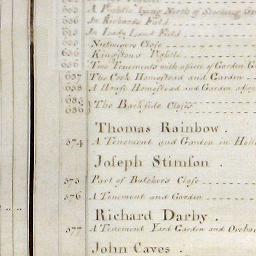 A Pightle lying North of Stocking
In Richards Field
In Lady Land Field
Nutmigers Close
Kingstons Pightle
636 Two Tenements with a piece of Garden
637 The Cock Homestead and Garden
638 A House Homestead and Garden
The Backside Closes
Thomas Rainbow .
574 A Tenement and Garden in
Joseph Stimson .
575 Part of Butchers Close
576 A Tenement and Garden
Richard Darby .
577 A Tenement Yard Garden and
John Caves .